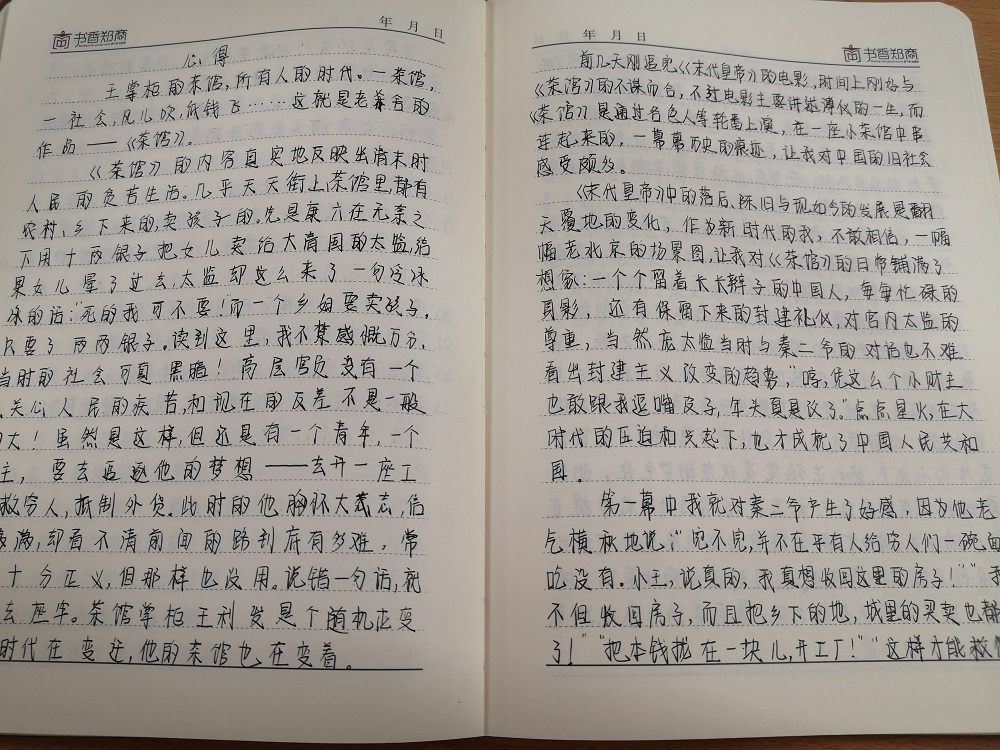 书香郑商
年 月 日
心得
王掌柜的茶馆,所有人的时代。一茶馆,
一社会,风儿吹,纸钱飞……这就是老舍的
作品——《茶馆》。
《茶馆》的内容真实地反映出清末时
人民的贫苦生活。几乎天天街上,茶馆里,都有
农村、乡下来的,卖孩子的。先是康六在无奈之
下用十两银子把女儿卖给大清国的太监,结
果女儿晕了过去,太监却这么来了一句冷冰
冰的话:"死的我可不要!而一个乡妇要卖孩子,
只要了两两银子。读到这里,我不禁感慨万分,
当时的社会可真黑暗!高层官员没有一个
关心人民的疾苦,和现在的反差不是一般
的大!虽然是这样,但还是有一个青年,一个
主,要去追逐他的梦想——去开一座工
救穷人,抵制外货。此时的他胸怀大志,信
满,却看不清前面的路到底有多难,常
十分正义,但那样也没用。说错一句话,就
去坐牢。茶馆掌柜王利发是个随机应变
时代在变迁,他的茶馆也在变着。
年 月 日
书香郑商
前几天刚追完《末代皇帝》的电影,时间上刚好与
《茶馆》的不谋而合,不过电影主要讲述溥仪的一生,而
《茶馆》是通过各色人等轮番上演,在一座小茶馆中串
连起来的,一幕幕历史的痕迹,让我对中国的旧社会
感受颇多。
《末代皇帝》中的落后、陈旧与现如今的发展是翻
天覆地的变化,作为新时代的我,不敢相信,一幅
幅老北京的场景图,让我对《茶馆》的日常铺满了
想象:一个个留着长长辫子的中国人,每每忙碌的
身影,还有保留下来的封建礼仪,对宫内太监的
尊重,当然庞太监当时与秦二爷的对话也不难
看出封建主义改变的趋势,"哼,凭这么个小财主
也敢跟我逗嘴皮子,年头真是改了"点点星火,在大
时代的压迫和兴起下,也才成就了中国人民共和
国。
第一幕中我就对秦二爷产生了好感,因为他老
气横秋地说:"完不完,并不在乎有人给穷人们一碗面
吃没有。小王,说真的,我真想收回这里的房子!""我
不但收回房子,而且把乡下的地,城里的买卖也都
了!""把本钱拢在一块儿,开工厂!""这样才能救